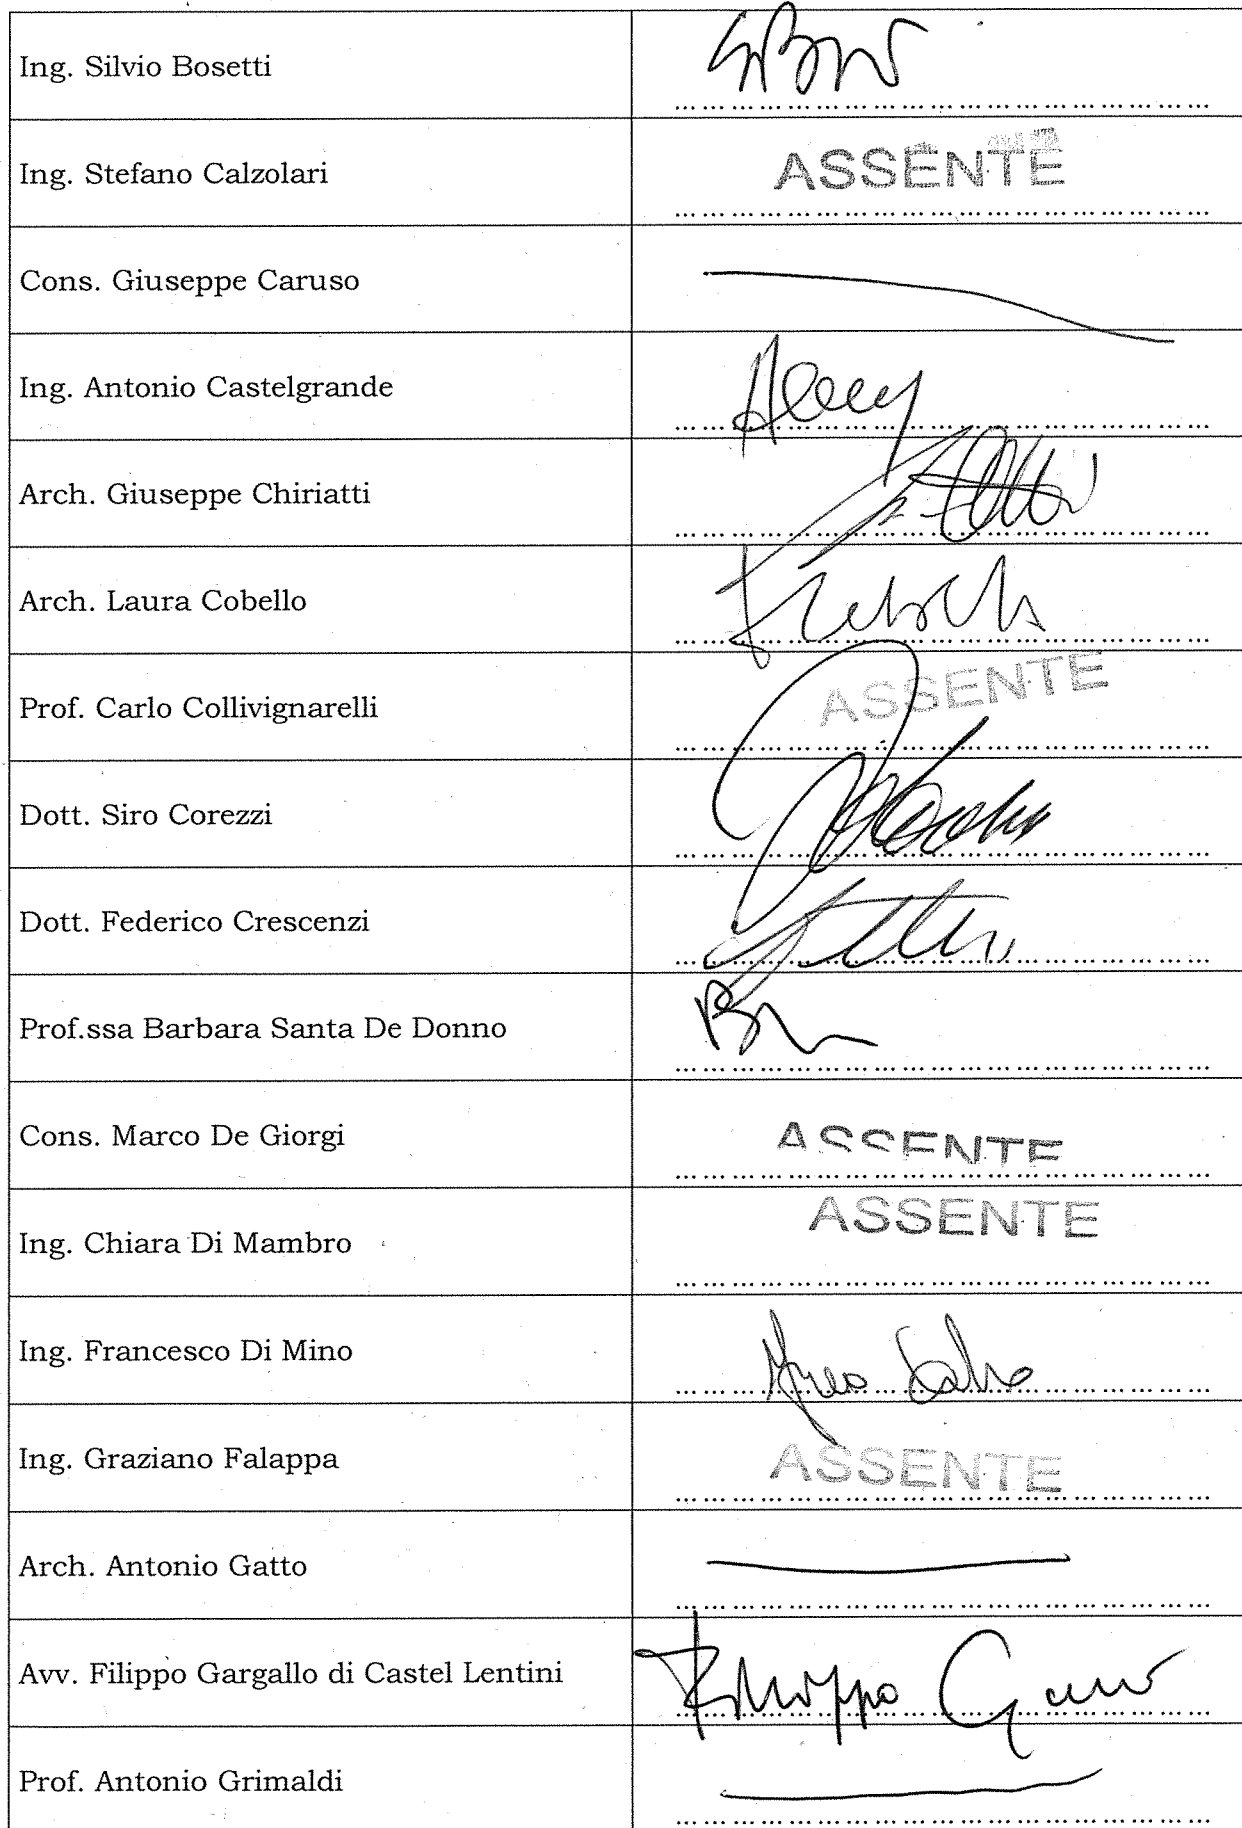 Ing. Silvio Bosetti
Ing. Stefano Calzolari ASSENTE
Cons. Giuseppe Caruso
Ing. Antonio Castelgrande
Arch. Giuseppe Chiriatti
Arch. Laura Cobello
Prof. Carlo Collivignarelli ASSENTE
Dott. Siro Corezzi
Dott. Federico Crescenzi
Prof.ssa Barbara Santa De Donno
Cons. Marco De Giorgi ASSENTE
Ing. Chiara Di Mambro ASSENTE
Ing. Francesco Di Mino
Ing. Graziano Falappa ASSENTE
Arch. Antonio Gatto
Avv. Filippo Gargallo di Castel Lentini Filippo
Prof. Antonio Grimaldi